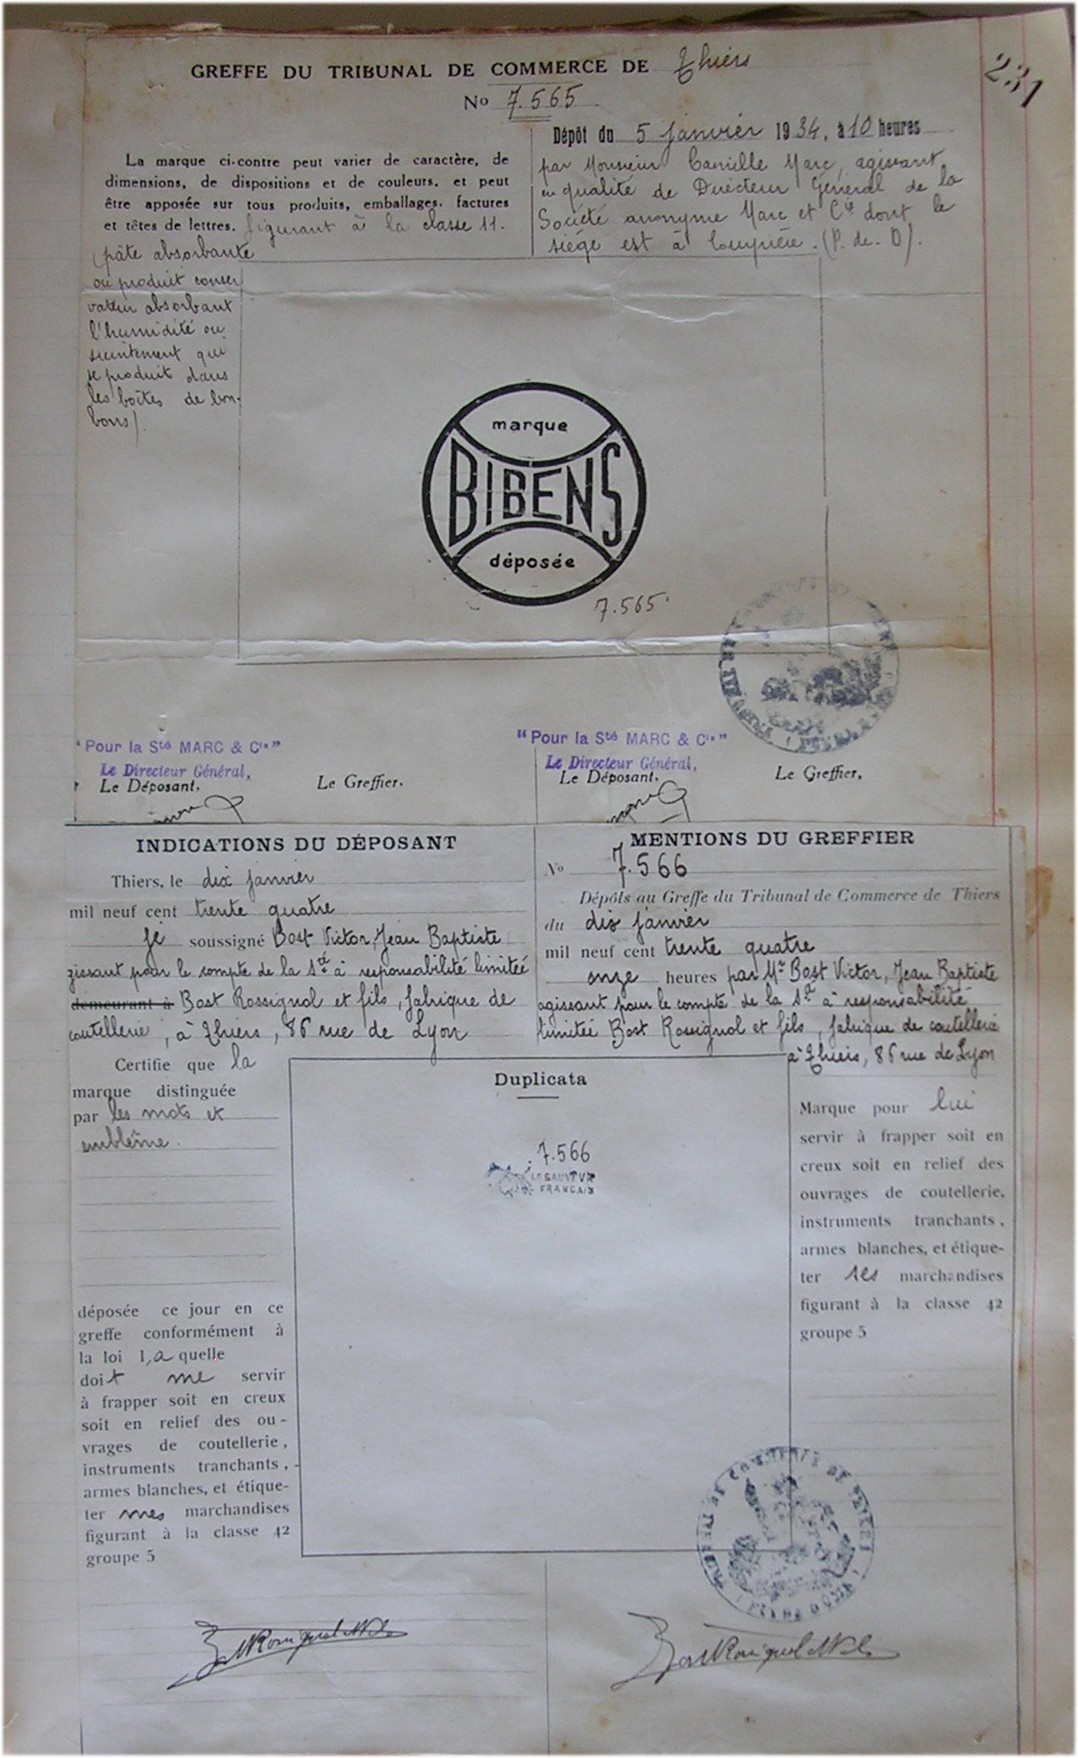 231
GREFFE DU TRIBUNAL DE COMMERCE DE Thiers
No 7.565
Dépôt du 5 janvier 1934, à 10 heures
La marque ci-contre peut varier de caractère, de
dimensions, de dispositions et de couleurs, et peut
être apposée sur tous produits, emballages, factures
et têtes de lettres, figurant à la classe 11.
(pâte absorbante
ou produit conser
vateur absorbant
l'humidité ou
suintement qui
se produit dans
les boîtes de bon-
bons)
par Monsieur Camille Marc, agissant
en qualité de Directeur Général de la
Société anonyme Marc et Cie dont le
siège est à Courpière. (P. de. D).
marque
BIBENS
déposée
7.565
"Pour la Sté MARC & Cie"
Le Directeur Général,
Le Déposant,
Le Greffier,
"Pour la Sté MARC & Cie"
Le Directeur Général,
Le Déposant,
Le Greffier,
INDICATIONS DU DÉPOSANT
Thiers, le dix janvier
mil neuf cent trente quatre
je soussigné Bost Victor, Jean Baptiste
gissant pour le compte de la Sté à responsabilité limitée
demeurant à Bost Rossignol et fils, fabrique de
coutellerie, à Thiers, 86 rue de Lyon
Certifie que la
marque distinguée
par les mots et
emblême.
déposée ce jour en ce
greffe conformément à
la loi l,a quelle
doit me servir
à frapper soit en creux
soit en relief des ou-
vrages de coutellerie,
instruments tranchants,
armes blanches, et étique-
ter mes marchandises
figurant à la classe 42
groupe 5
MENTIONS DU GREFFIER
No 7.566
Dépôts au Greffe du Tribunal de Commerce de Thiers
du dix janvier
mil neuf cent trente quatre
onze heures par Mr Bost Victor, Jean Baptiste
agissant pour le compte de la Sté à responsabilité
limitée Bost Rossignol et fils, fabrique de coutellerie
à Thiers, 86 rue de Lyon
Duplicata
7.566
LE SAUVEUR
FRANÇAIS
Marque pour lui
servir à frapper soit en
creux soit en relief des
ouvrages de coutellerie,
instruments tranchants,
armes blanches, et étique-
ter ses marchandises
figurant à la classe 42
groupe 5